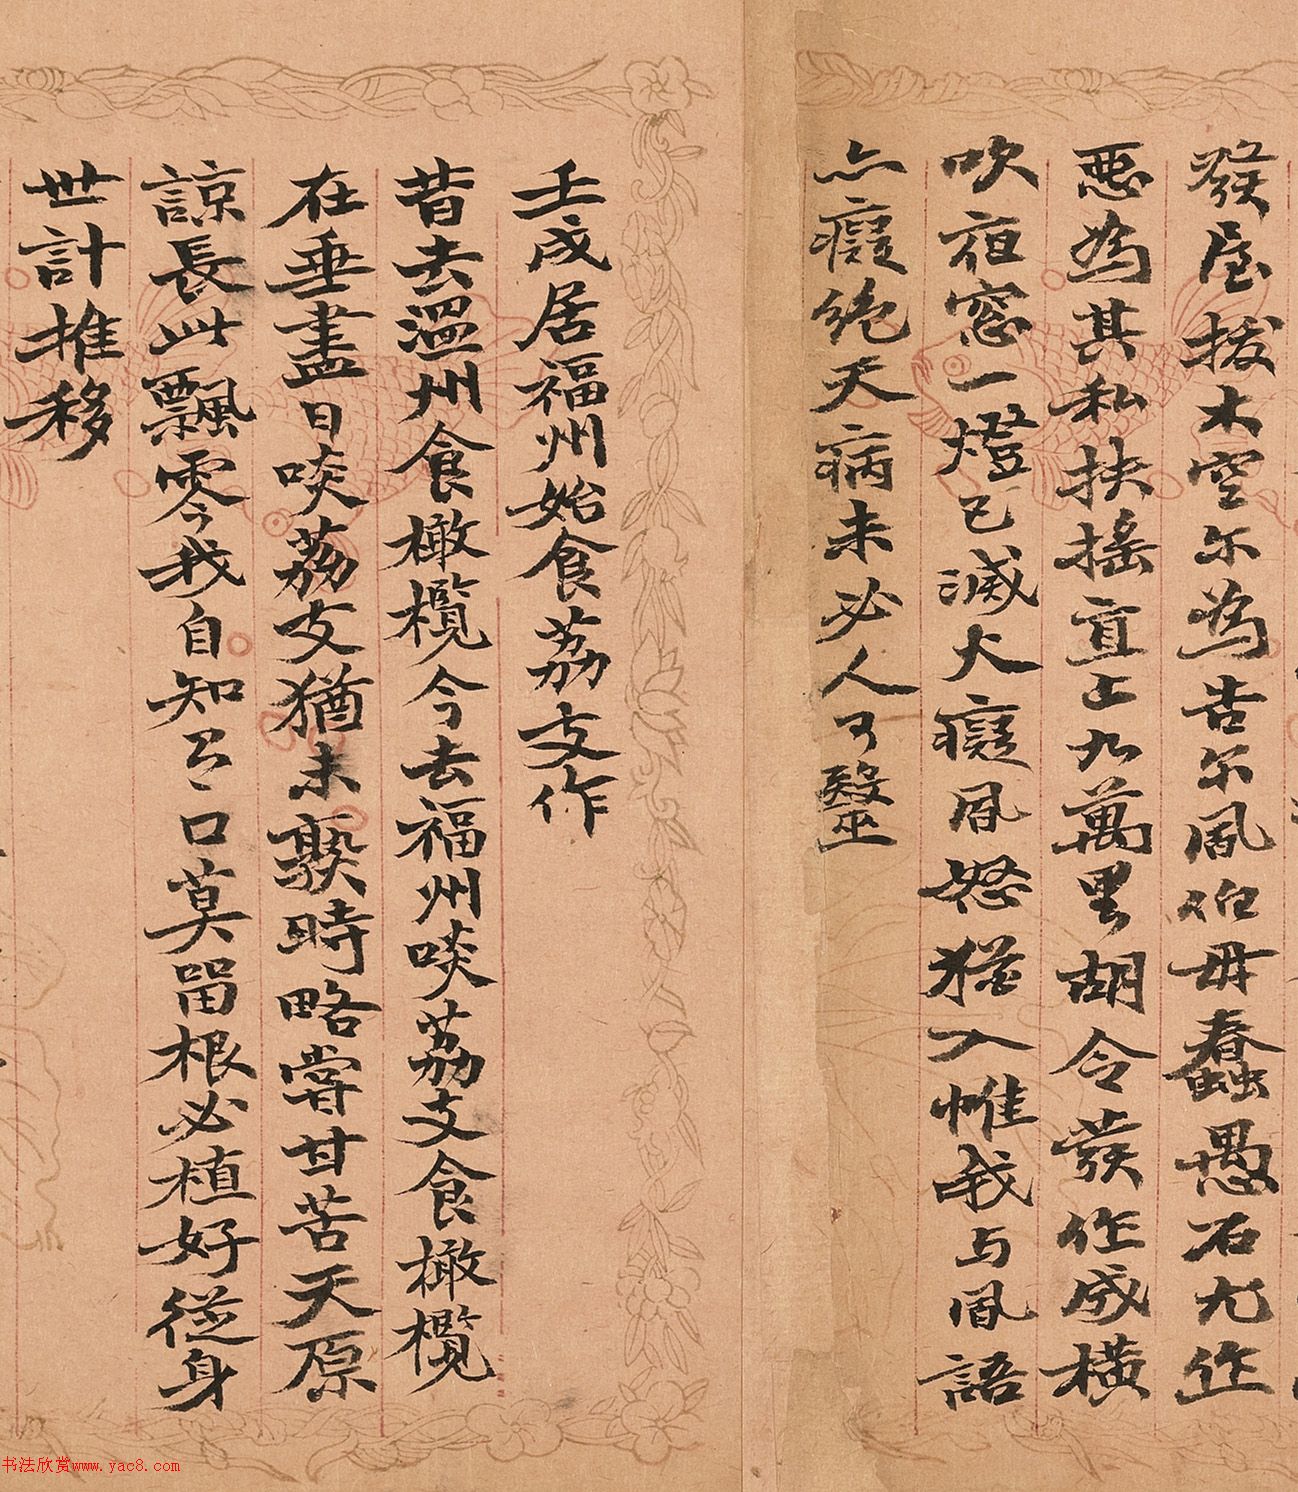 發屋拔木空尔為告尔風伯毋蠢愚石尤作
惡為其私扶搖直上九萬里胡令發作威橫
吹夜窓一燈已滅大癡風怒猶入帷我与風語
亦癡絶天病未必人可醫
壬戌居福州始食荔支作
昔去溫州食橄欖今去福州啖荔支食橄欖
在垂盡日啖荔支猶未爇時略嘗甘苦天原
諒長此飄零我自知口莫留根必植好從身
世計推移
书法欣赏www.yac8.com